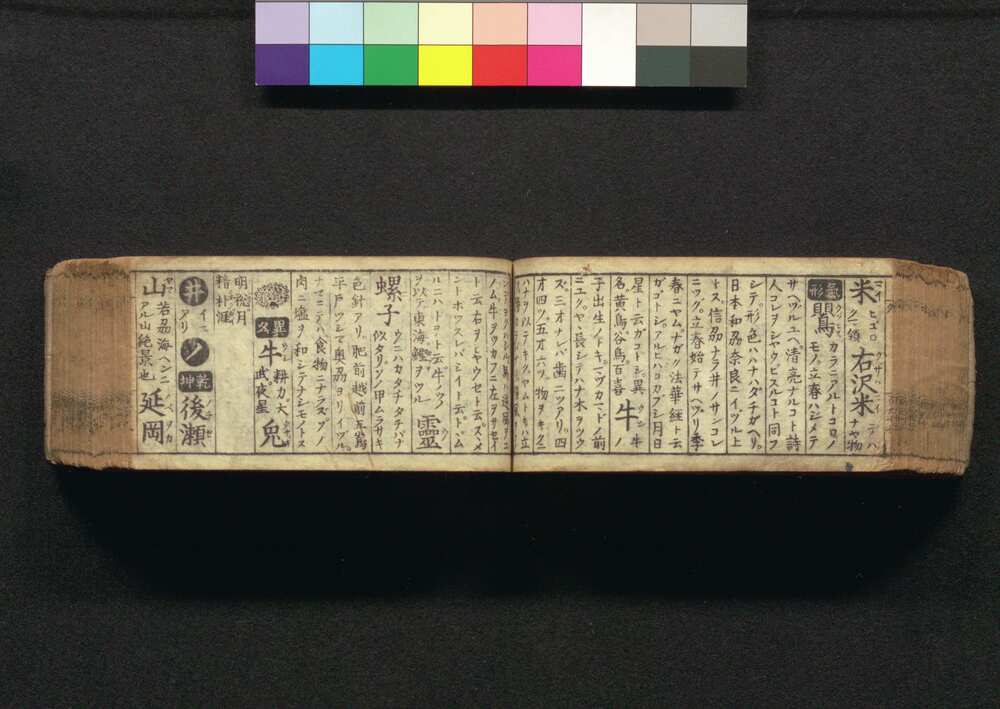 米 ヒゴロノ領 右沢米 ナヤ物
氣形 鸎 カラニアルトコロノ
モノ立春ハジメテ
サヘヅルユヘ清亮ナルコト詩
人コレヲシヤウビスルコト同フ
シテ形色ハハナハダチガヘリ。
日本和刕奈良ニイヅル上
トス信刕ナラ井ノサンコレ
ニツグ立春始テサヘヅリ季
春ニヤムナガク法華経ト云
ガゴトシアルヒハヨカブシ月日
星ト云ガゴトシ異
名黄鳥谷鳥百喜
牛 ウシ 牛
子出生ノトキマヅカマドノ前
ニユクヤヽ長シテハナ木ヲツク
ズ三才オナレバ歯ニツアリ四
才四ツ五才六ツ物ヲキクニ
ハナヲ以テキクヤムトキハ立
ノム牛ヲウカフニ左ヲサセイ
ト云右ヲヒヤウセト云ズヽメ
ントホツスレバシイト云トヾム
ルニハトロ〳〵ト云牛ノツノ
ヲ以テ東海鰹ヲツル
靈
螺子 ウニハカタチタチバナ
似タリソノ甲ムラサキ
色針アリ肥前越前五嶌
平戸ツシマ奥刕ヨリイヅル。
ナマニテハ食物ニナラズソノ
肉ニ塩ヲ和シテナシモノトス
異名 牛 耕カ大武夜星 兎
明視月精朴渥
井 イニアリ ノ 乾坤 後瀬 ノチセ
山 ヤマ 若刕海ヘンニアル山絶景也 延岡 ノベヲカ